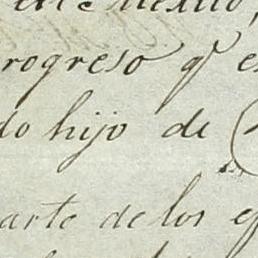 en Mexico,
rogreso q e
do hijo de
arte de los ef